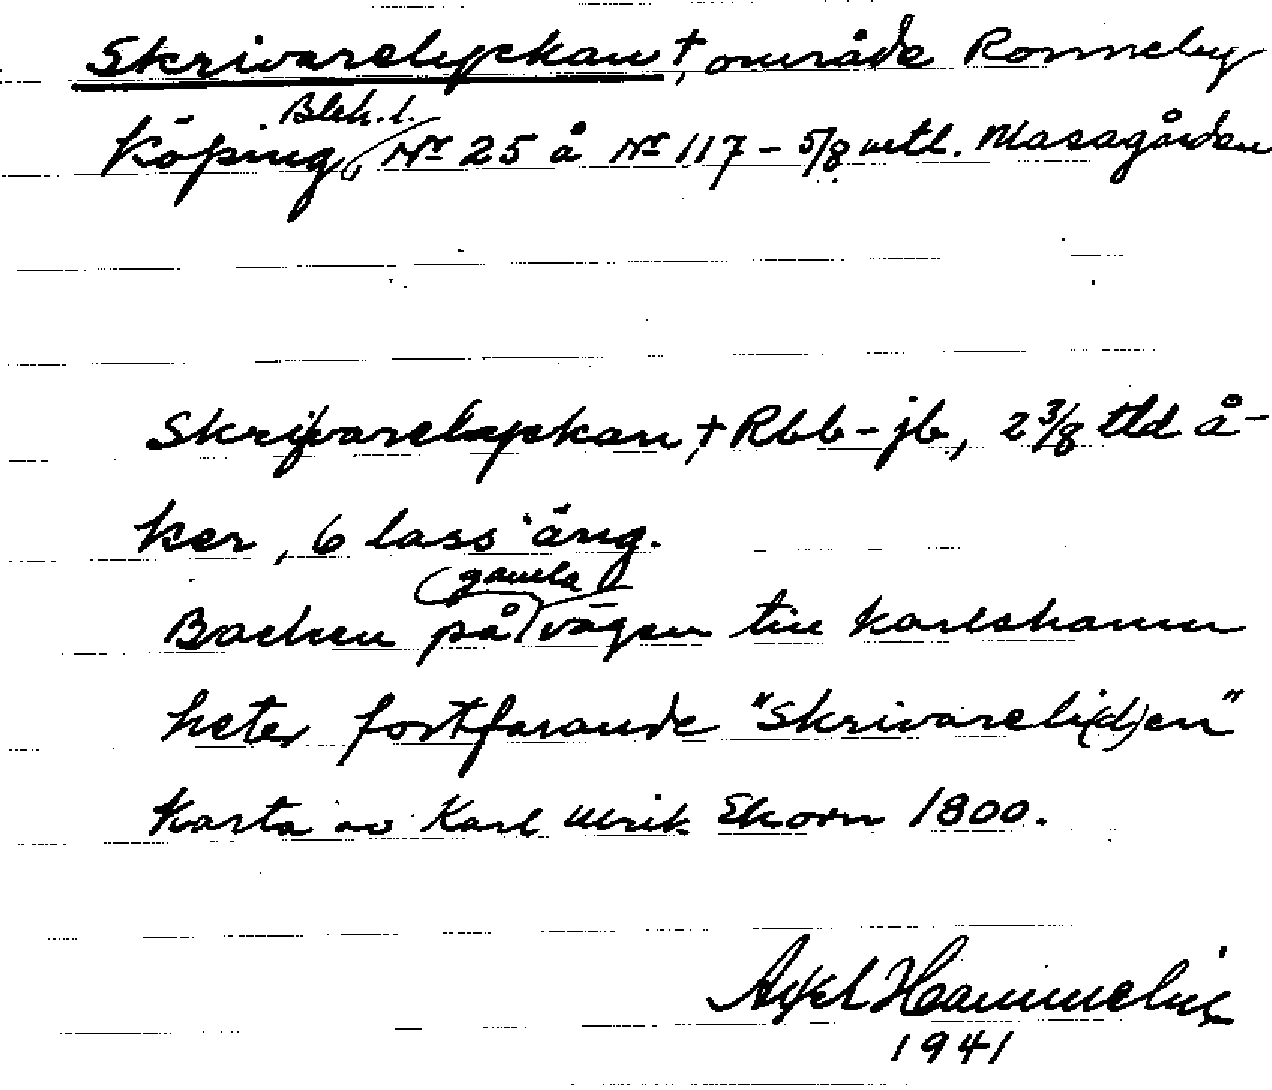 Skrivarelyckan †, område Ronneby
Blek. l.
Köping, No 25 å No 117 – 5/8 mtl. Masagården
Skrivarelyckan, † Rbb-jb, 2 3/8 tld å-
ker, 6 lass äng.
gamla
Backen på vägen till Karlshamn
heter fortfarande "Skrivareli(d)en"
Karta av Karl Ulrik Ekorn 1800.
Axel Hammelin
1941